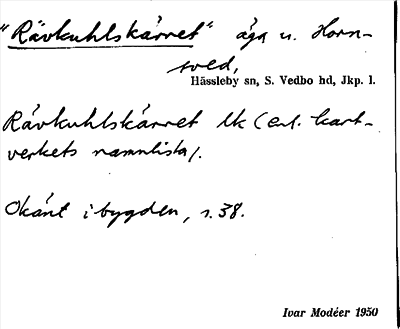 "Rävkuhlskärret" äga u. Horn-
sved,
Hässleby sn, S. Vedbo hd, Jkp. l.
Rävkuhlskärret lk (enl. kart-
verkets namnlista).
Okänt i bygden, s. 38.
Ivar Modéer 1950